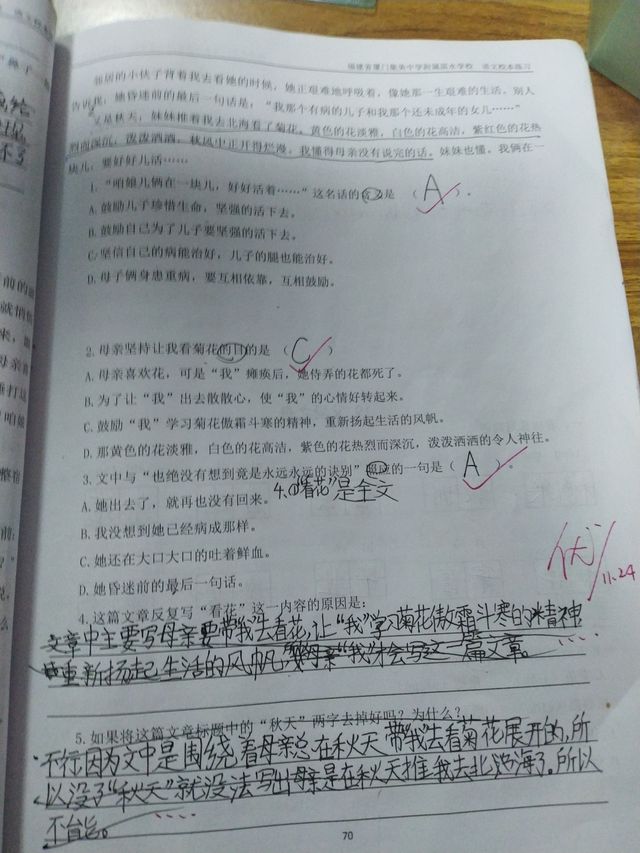 福建省厦门集美中学附属滨水学校 语文校本练习
邻居的小伙子背着我去看她的时候，她正艰难地呼吸着，像她那一生艰难的生活。别人
告诉我，她昏迷前的最后一句话是：“我那个有病的儿子和我那个还未成年的女儿……”
又是秋天，妹妹推着我去北海看了菊花。黄色的花淡雅，白色的花高洁，紫红色的花热
烈而深沉，泼泼洒洒，秋风中正开得烂漫。我懂得母亲没有说完的话。妹妹也懂。我俩在一
块儿，要好好儿活……
1. “咱娘儿俩在一块儿，好好活着……”这名话的含义是 （ A ）。
A. 鼓励儿子珍惜生命，坚强的活下去。
B. 鼓励自己为了儿子要坚强的活下去。
C. 坚信自己的病能治好，儿子的腿也能治好。
D. 母子俩身患重病，要互相依靠，互相鼓励。
2. 母亲坚持让我看菊花的目的是 （ C ）
A. 母亲喜欢花，可是“我”瘫痪后，她侍弄的花都死了。
B. 为了让“我”出去散散心，使“我”的心情好转起来。
C. 鼓励“我”学习菊花傲霜斗寒的精神，重新扬起生活的风帆。
D. 那黄色的花淡雅，白色的花高洁，紫色的花热烈而深沉，泼泼洒洒的令人神往。
3. 文中与“也绝没有想到竟是永远永远的诀别”照应的一句是（ A ）。
4.①“看花”是全文
A. 她出去了，就再也没有回来。
B. 我没想到她已经病成那样。
C. 她还在大口大口的吐着鲜血。
D. 她昏迷前的最后一句话。
优
11.24
4. 这篇文章反复写“看花”这一内容的原因是：
文章中主要写母亲要带“我”去看花，让“我”学习菊花傲霜斗寒的精神
重新扬起生活的风帆，母亲“我”才会写这一篇文章。
5. 如果将这篇文章标题中的“秋天”两字去掉好吗？为什么？
不行，因为文中是围绕着母亲总在秋天带“我”去看菊花展开的，所
以没了“秋天”就没法写出母亲是在秋天推我去北海了。所以
不能。
70